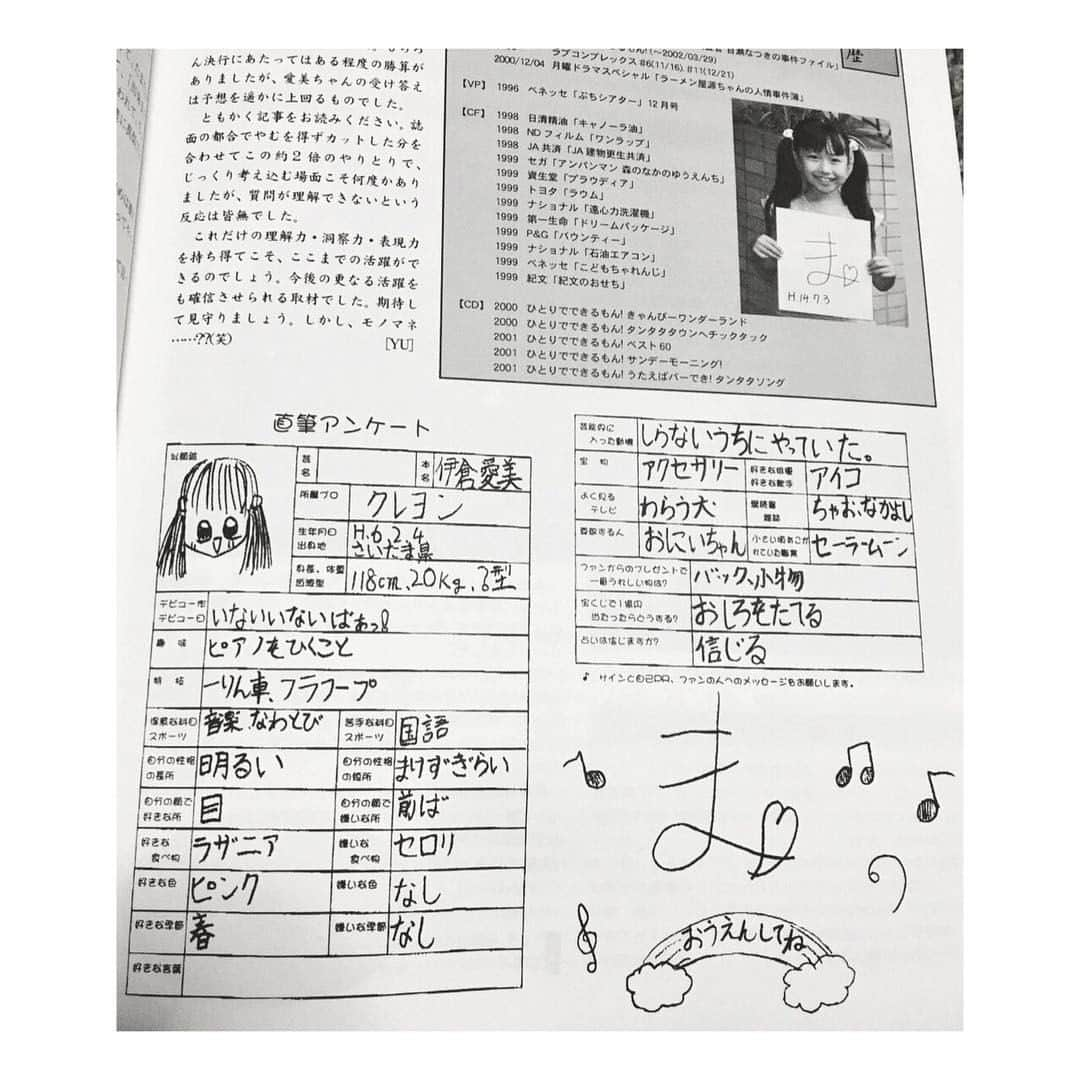 ん決行にあたってはある程度の勝算が
ありましたが、愛美ちゃんの受け答え
は予想を遥かに上回るものでした。
ともかく記事をお読みください。誌
面の都合でやむを得ずカットした分を
合わせてこの約２倍のやりとりで、
じっくり考え込む場面こそ何度かあり
ましたが、質問が理解できないという
反応は皆無でした。
これだけの理解力・洞察力・表現力
を持ち得てこそ、ここまでの活躍がで
きるのでしょう。今後の更なる活躍を
も確信させられる取材でした。期待し
て見守りましょう。しかし、モノマネ
……??(笑) [YU]
歴
(～2002/03/29)
ラブコンプレックス #6(11/16), #11(12/21)
2000/12/04 月曜ドラマスペシャル「ラーメン屋源ちゃんの人情事件簿」
【VP】 1996 ベネッセ「ぷちシアター」12月号
【CF】 1998 日清精油「キャノーラ油」
1998 NDフィルム「ワンラップ」
1998 JA共済「JA建物更生共済」
1999 セガ「アンパンマン 森のなかのゆうえんち」
1999 資生堂「プラウディア」
1999 トヨタ「ラウム」
1999 ナショナル「遠心力洗濯機」
1999 第一生命「ドリームパッケージ」
1999 P&G「バウンティー」
1999 ナショナル「石油エアコン」
1999 ベネッセ「こどもちゃれんじ」
1999 紀文「紀文のおせち」
【CD】 2000 ひとりでできるもん! きゃんびーワンダーランド
2000 ひとりでできるもん! タンタタタウンへチックタック
2001 ひとりでできるもん! ベスト60
2001 ひとりでできるもん! サンデーモーニング!
2001 ひとりでできるもん! うたえばパーでき! タンタタソング
ま
H.14.7.3
直筆アンケート
似顔絵
芸名
本名 伊倉愛美
所属プロ クレヨン
生年月日 H.6.2.4
出身地 さいたま県
身長、体重 118cm、20kg、B型
血液型
デビュー作 いないいないばぁっ!
デビュー日
趣味 ピアノをひくこと
特技 一りん車、フラフープ
得意な科目 音楽、なわとび 苦手な科目 国語
スポーツ スポーツ
自分の性格 明るい 自分の性格 まけずぎらい
の長所 の短所
自分の顔で 目 自分の顔で 前ば
好きな所 嫌いな所
好きな ラザニア 嫌いな セロリ
食べ物 食べ物
好きな色 ピンク 嫌いな色 なし
好きな季節 春 嫌いな季節 なし
好きな言葉
芸能界に しらないうちにやっていた。
入った動機
宝物 アクセサリー 好きな俳優 アイコ
好きな歌手
よく見る わらう犬 愛読書 ちゃお、なかよし
テレビ 雑誌
尊敬する人 おにいちゃん 小さい頃あこが セーラームーン
れていた職業
ファンからのプレゼントで バック、小物
一番うれしい物は?
宝くじで1億円 おしろをたてる
当たったらどうする?
占いは信じますか? 信じる
♪ サインと自己PR、ファンの人へのメッセージをお願いします。
ま
おうえんしてね